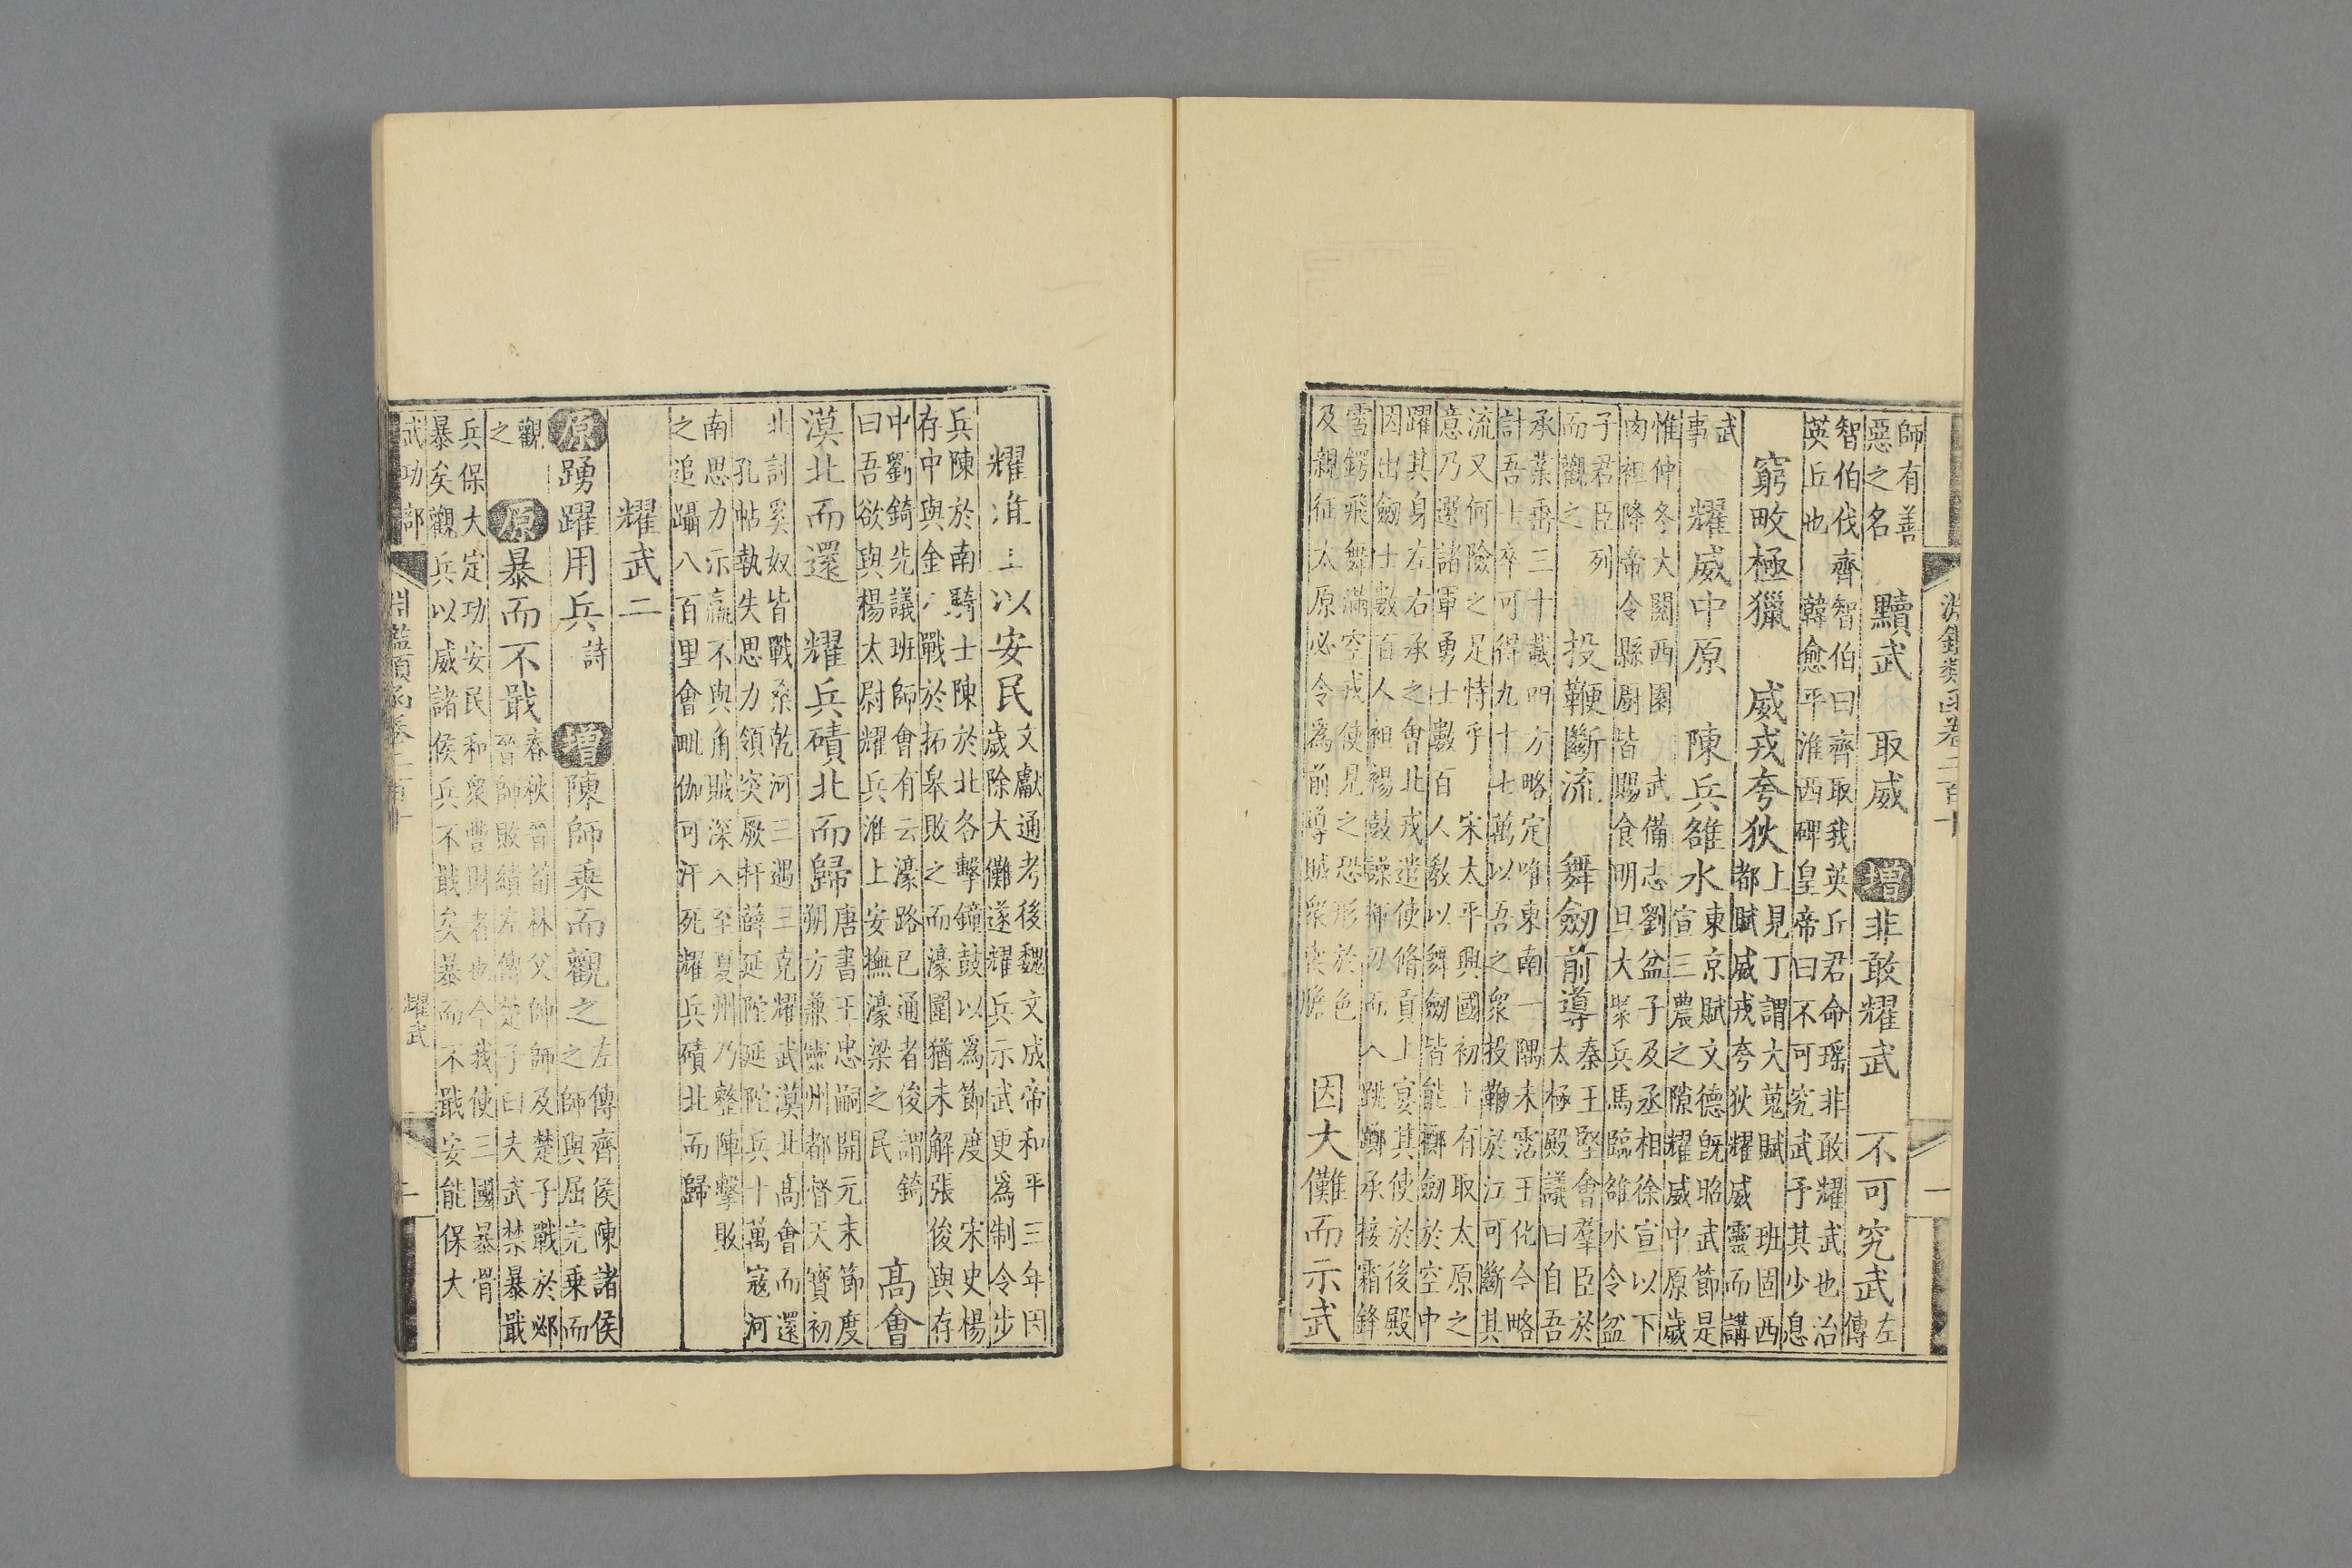 淵鑑類函卷二百十 一
師有善
惡之名
黷武 取威 增非敢耀武 不可究武
左
傳
智伯伐齊智伯曰齊取我英丘君命瑤非敢耀武也治
英丘也 韓愈平淮西碑皇帝曰不可究武予其少息
窮畋極獵 威戎夸狄
上見丁謂大蒐賦 班固西
都賦威戎夸狄耀威靈而講
武
事
耀威中原 陳兵雒水
東京賦文德既昭武節是
宣三農之隙耀威中原歲
惟仲冬大閱西園 武備志劉盆子及丞相徐宣以下
肉袒降帝令縣廚皆賜食明旦大聚兵馬臨雒水令盆
子君臣列
而觀之
投鞭斷流 舞劒前導
秦王堅會羣臣於
太極殿議曰自吾
承業垂三十載四方略定唯東南一隅未霑王化今略
計吾士卒可得九十七萬以吾之衆投鞭於江可斷其
流又何險之足恃乎 宋太平興國初上有取太原之
意乃選諸軍勇士數百人教以舞劒皆能擲劒於空中
躍其身左右承之會北戎遣使脩貢上宴其使於後殿
因出劒士數百人袒裼鼓譟揮刃而入跳擲承接霜鋒
雪鍔飛舞滿空戎使見之恐形於色
及親征太原必令爲前導賊衆喪膽
因大儺而示武
耀淮上以安民
文獻通考後魏文成帝和平三年因
歲除大儺遂耀兵示武更爲制令步
兵陳於南騎士陳於北各擊鐘鼓以爲節度 宋史楊
存中與金人戰於拓皋敗之而濠圍猶未解張俊與存
中劉錡先議班師會有云濠路已通者俊謂錡
曰吾欲與楊太尉耀兵淮上安撫濠梁之民
高會
漠北而還 耀兵磧北而歸
唐書王忠嗣開元末節度
朔方兼靈州都督天寶初
北討奚奴皆戰桑乾河三遇三克耀武漠北高會而還
孔帖執失思力領突厥扞薛延陀延陀兵十萬寇河
南思力示羸不與角賊深入至夏州乃整陣擊敗
之追躡八百里會毗伽可汗死耀兵磧北而歸
耀武二
原踴躍用兵 詩 增陳師乘而觀之
左傳齊侯陳諸侯
之師與屈完乘而
觀
之
原暴而不戢
春秋晉荀林父帥師及楚子戰於邲
晉師敗績左傳楚子曰夫武禁暴戢
兵保大定功安民和衆豐財者也今我使三國暴骨
暴矣觀兵以威諸侯兵不戢矣暴而不戢安能保大
武功部 淵鑑類函卷二百十 耀武 二